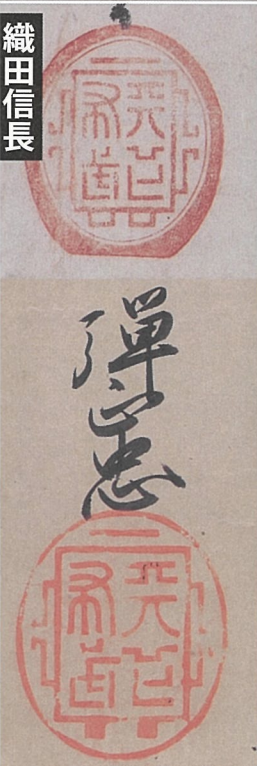 織田信長
天下布武
弾正忠
天下布武